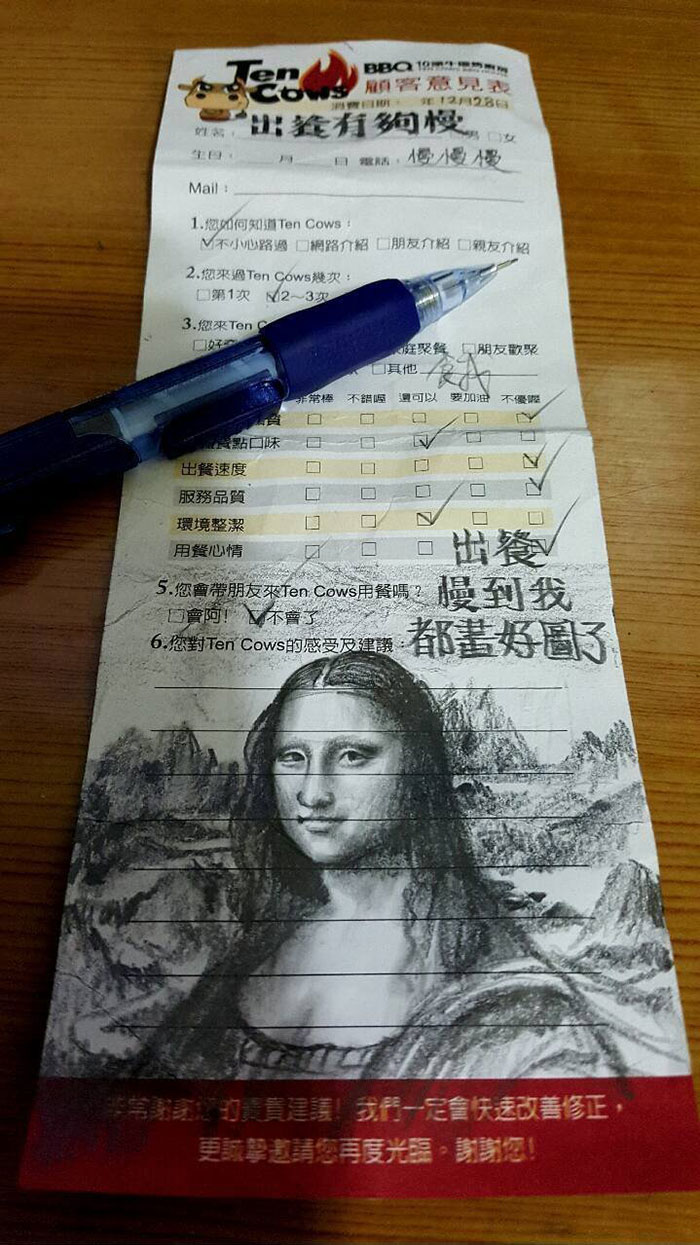 Ten Cows
BBQ
顧客意見表
消費日期： 年12月28日
姓名： 出養有夠慢 男 □女
生日： 月 日 電話：慢慢慢
Mail：
1.您如何知道Ten Cows：
☑不小心路過 □網路介紹 □朋友介紹 □親友介紹
2.您來過Ten Cows幾次：
□第1次 ☑2～3次
3.您來Ten C
□好 家庭聚餐 □朋友歡聚
□其他
非常棒 不錯喔 還可以 要加油 不優喔
餐點口味
出餐速度
服務品質
環境整潔
用餐心情
出餐
慢到我
都畫好圖了
5.您會帶朋友來Ten Cows用餐嗎？
□會阿! ☑不會了
6.您對Ten Cows的感受及建議：
非常謝謝您的寶貴建議! 我們一定會快速改善修正，
更誠摯邀請您再度光臨。謝謝您!